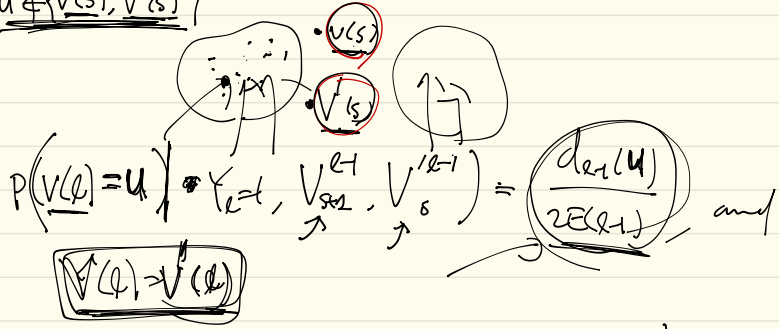 u ∈ {V(s), V'(s)}
V(s)
V'(s)
P(V(l) = u | Y_l=1, V_{s+1}^{l-1}, V_s'^{l-1}) = d_{l-1}(u) / 2E(l-1) and
V(l) = V'(l)